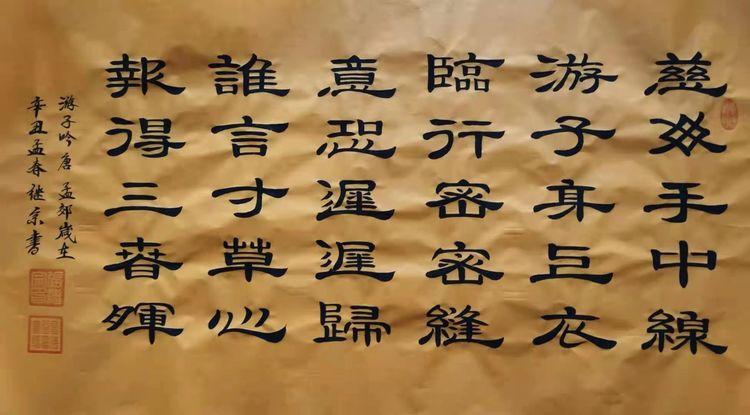 慈母手中線
游子身上衣
臨行密密縫
意恐遲遲歸
誰言寸草心
報得三春暉
游子吟唐孟郊歲在
辛丑孟春继京書